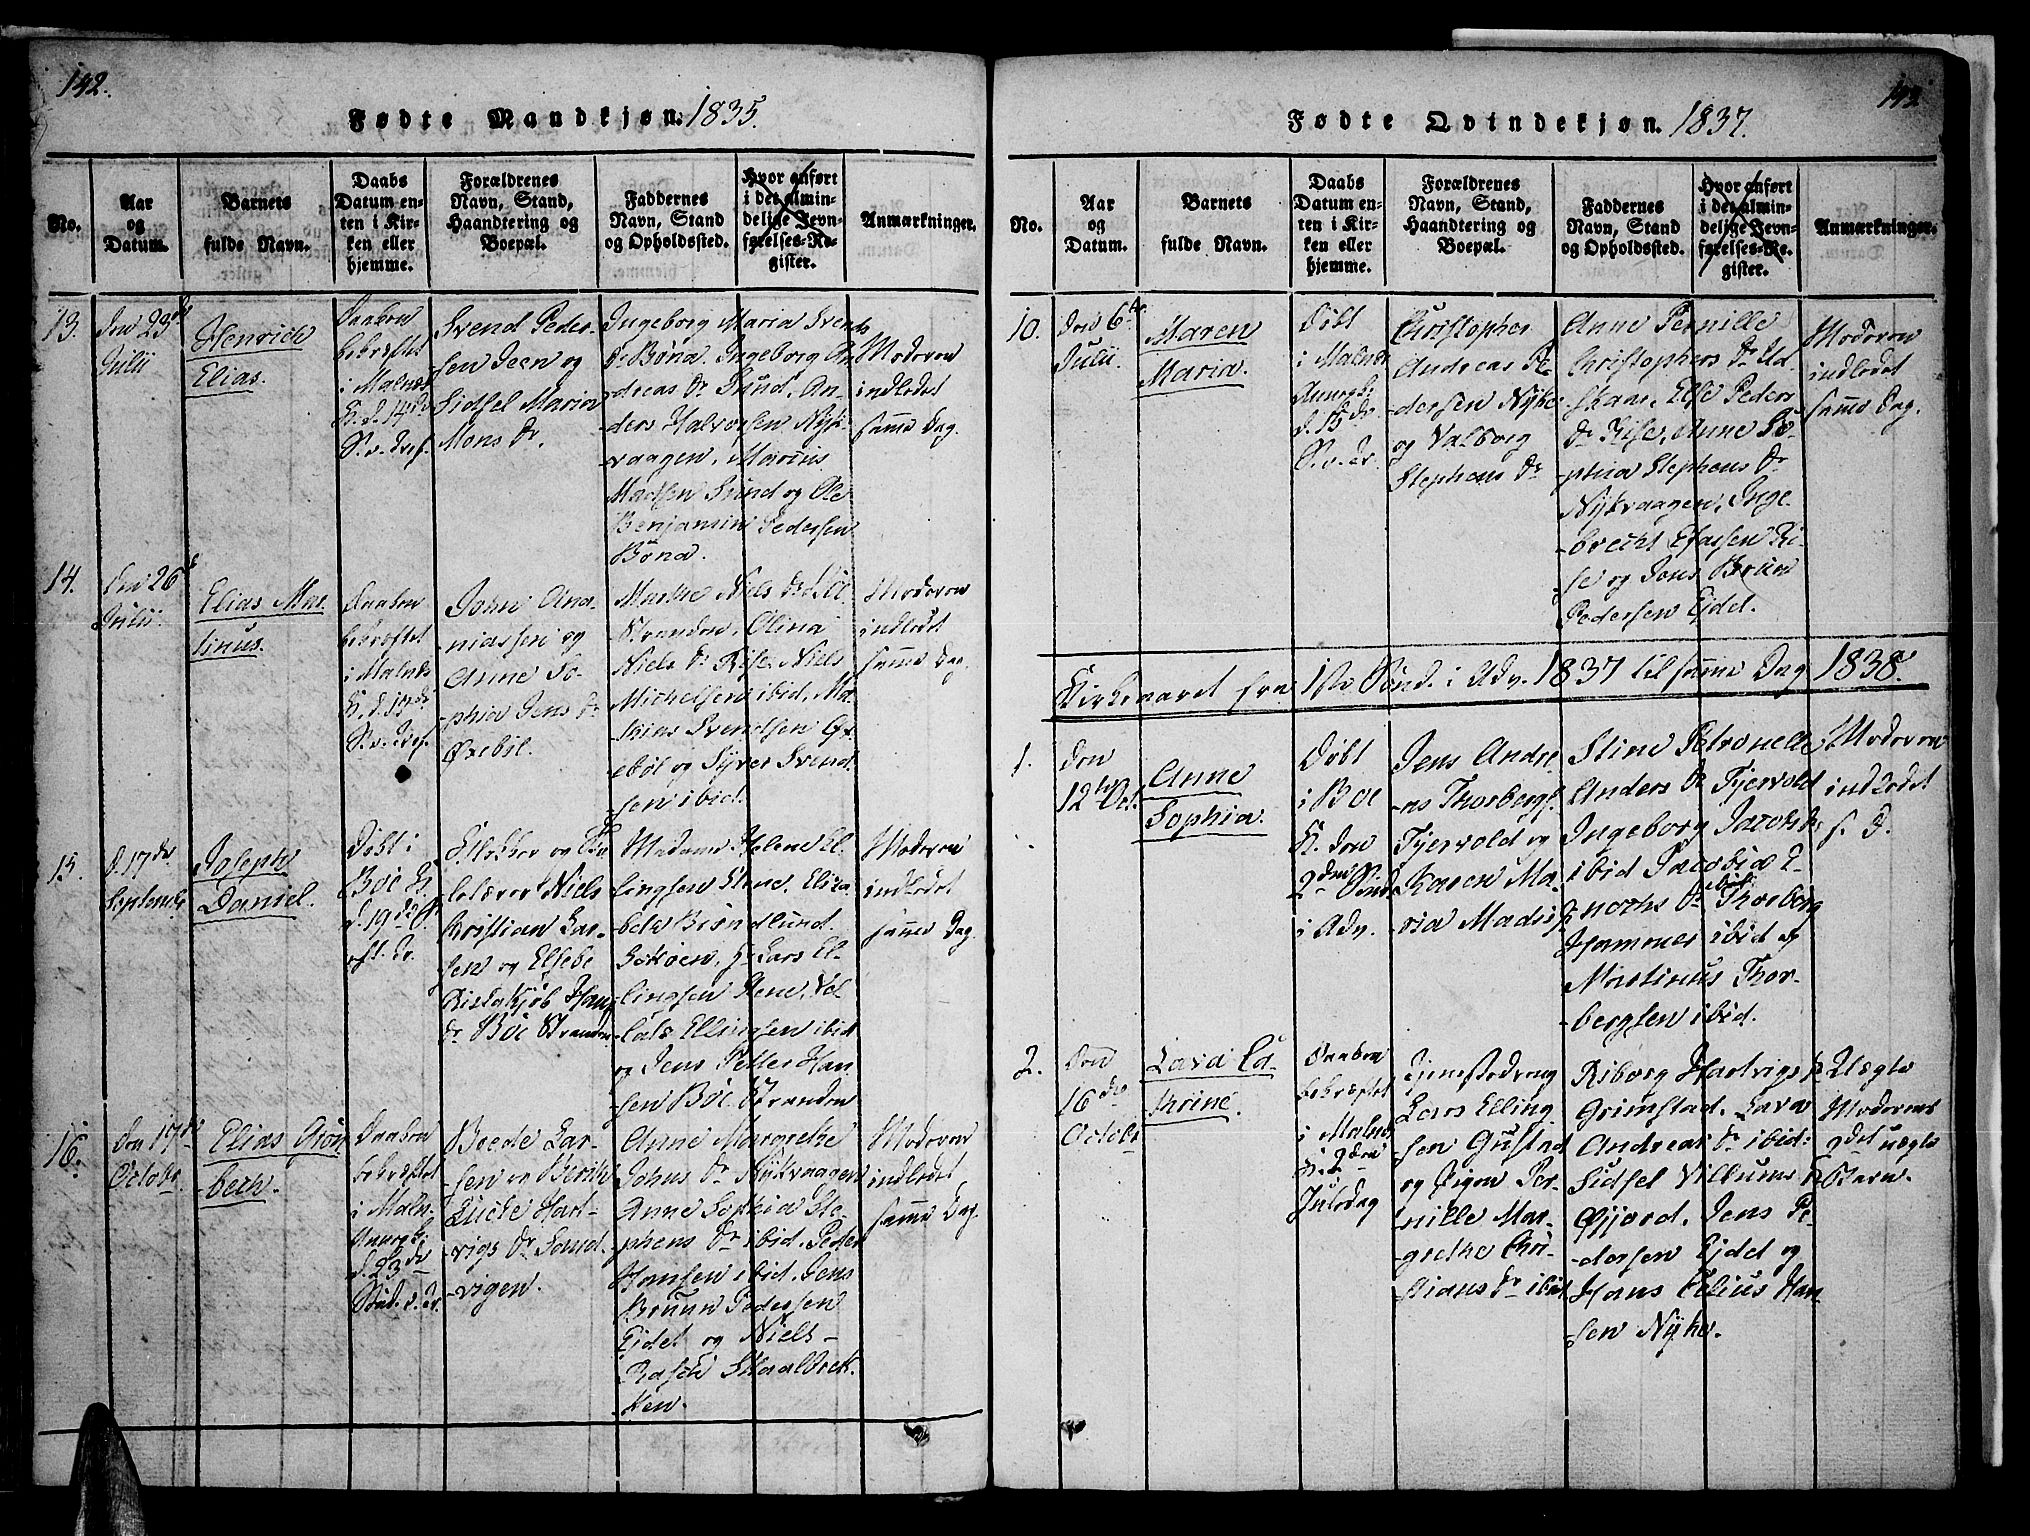 142.
Fødte Mandkjøn. 1835.
No.
Aar
og
Datum.
Barnets
fulde Navn.
Daabs
Datum en-
ten i Kir-
ken eller
hjemme.
Forældrenes
Navn, Stand,
Haandtering og
Boepæl.
Faddernes
Navn, Stand
og Opholdssted.
Hvor anført
i det almin-
delige Jevn-
førelses-Re-
gister.
Anmærkninger.
13.
den 23de
Julii
Henrich
Elias.
Daaben
bekræftet
i Malnes
K. d. 14de
S. v. Tref.
Svend Peder-
sen Steen og
Sidsel Maria
Mons Dr.
Ingeborg Maria Svends
Dr Bøna, Ingeborg An-
dreas Dr Sund, An-
ders Halvorsen Nyk-
vaagen, Marius
Madsen Sund og Ole
Benjamin Pedersen
Bøna.
Moderen
indledet
samme Dag.
14.
den 26de
Julii.
Elias Mar-
tinus.
Daaben
bekræftet
i Malnes
K. d. 14de
S. v. Tref.
John Ana-
niassen og
Anne So-
phia Jens Dr
Øxebøl.
Marthe Niels Dr Böe
Stranden, Olina
Niels Dr Rise, Niels
Michelsen ibid, Ma-
thias Svendsen Øx-
ebøl og Syver Svend-
sen ibid.
Moderen
indledet
samme Dag
15.
d. 17de
Septembr
Joseph
Daniel.
Døbt i
Böe K.
d. 19de S.
eft. Tr.
Klokker og Sko-
lelærer Niels
Christian Lar-
sen og Elsebe
Risdahjøb Hans
Dr Böe Stranden
Madame Helene El-
lingsen Steene, Eliza-
beth Brøndlund
Gokøen, Hr Lars El-
lingsen Stene,
Ellingsen ibid
og Jens Petter Han-
sen Böe Stranden
Moderen
indledet
samme Dag.
16.
den 17de
Octobr.
Elias Grön-
bech.
Daaben
bekræftet
i Maln.
Annexk.
d. 23de
Sönd. v. Tr.
Brede Lar-
sen og Berith
Lucie Hart-
vigs Dr Sand-
vigen.
Anne Margrethe
Johns Dr Nykvaagen
Anne Sophia Ste-
phens Dr ibid. Peder
Hansen ibid, Jens
Bruun Pedersen
Eidet og Niels
Rasch Skaalbrek-
ken.
Moderen
indledet
samme Dag.
143.
Fødte Qvindekjøn. 1837.
No.
Aar
og
Datum.
Barnets
fulde Navn.
Daabs
Datum en-
ten i Kir-
ken eller
hjemme.
Forældrenes
Navn, Stand,
Haandtering og
Boepæl.
Faddernes
Navn, Stand
og Opholdssted.
Hvor anført
i det almin-
delige Jevn-
førelses-Re-
gister.
Anmærkninger.
10.
den 6te
Julii
Maren
Maria.
Døbt
i Malnes
Annexk.
d. 15de
S. v. Tr.
Christopher
Andreas Pe-
dersen Nyke
og Valborg
Stephens Dr
Anne Pernille
Christophers Dr Ud-
skaar, Else Peders
Dr Rise, Anne So-
phia Stephens Dr
Nykvaagen, Inge-
brecht Esaisen Ri-
se og Jens Bruun
Pedersen Eidet.
Moderen
indledet
samme Dag.
Kirkeaaret fra 1ste Sönd. i Adv. 1837 til samme Dag 1838.
1.
den
12te Oct.
Anne
Sophia.
Døbt
i Böe
K. den
2den Sönd.
i Adv.
Jens Andre-
as Thorbergs.
Fjervold og
Karen Ma-
ria Mads Dr
Stine Petronelle
Anders Dr Fjervold
Ingeborg Jacobs Dr
ibid Jacobia E-
nochs Dr ibid, Thorberg
Hammer ibid og
Martinus Thor-
bergsen ibid.
Moderen
indledet
s. D.
2.
den
16de
Octobr
Lava Ca-
thrine.
Daaben
bekræftet
i Malnes
K. 2den
Juledag
Tjenestedreng
Lars Elling-
sen Gustad
og Pigen Per-
nille Mar-
grethe Chri-
stians Dr ibid
Riborg Hartvigs Dr
Grimstad, Lava
Andreas Dr ibid:
Sidsel Villums Dr
Gjjord, Jens Pe-
dersen Eidet og
Hans Tilius Han-
sen Nyke.
Uægte
Moderens
2det uægte
Barn.